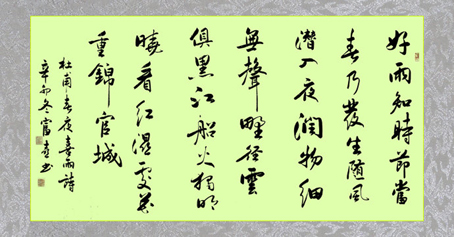 好雨知時節當
春乃發生隨風
潛入夜潤物細
無聲野徑雲
俱黑江船火獨明
曉看紅濕處花
重錦官城
杜甫春夜喜雨詩
辛卯冬富春书